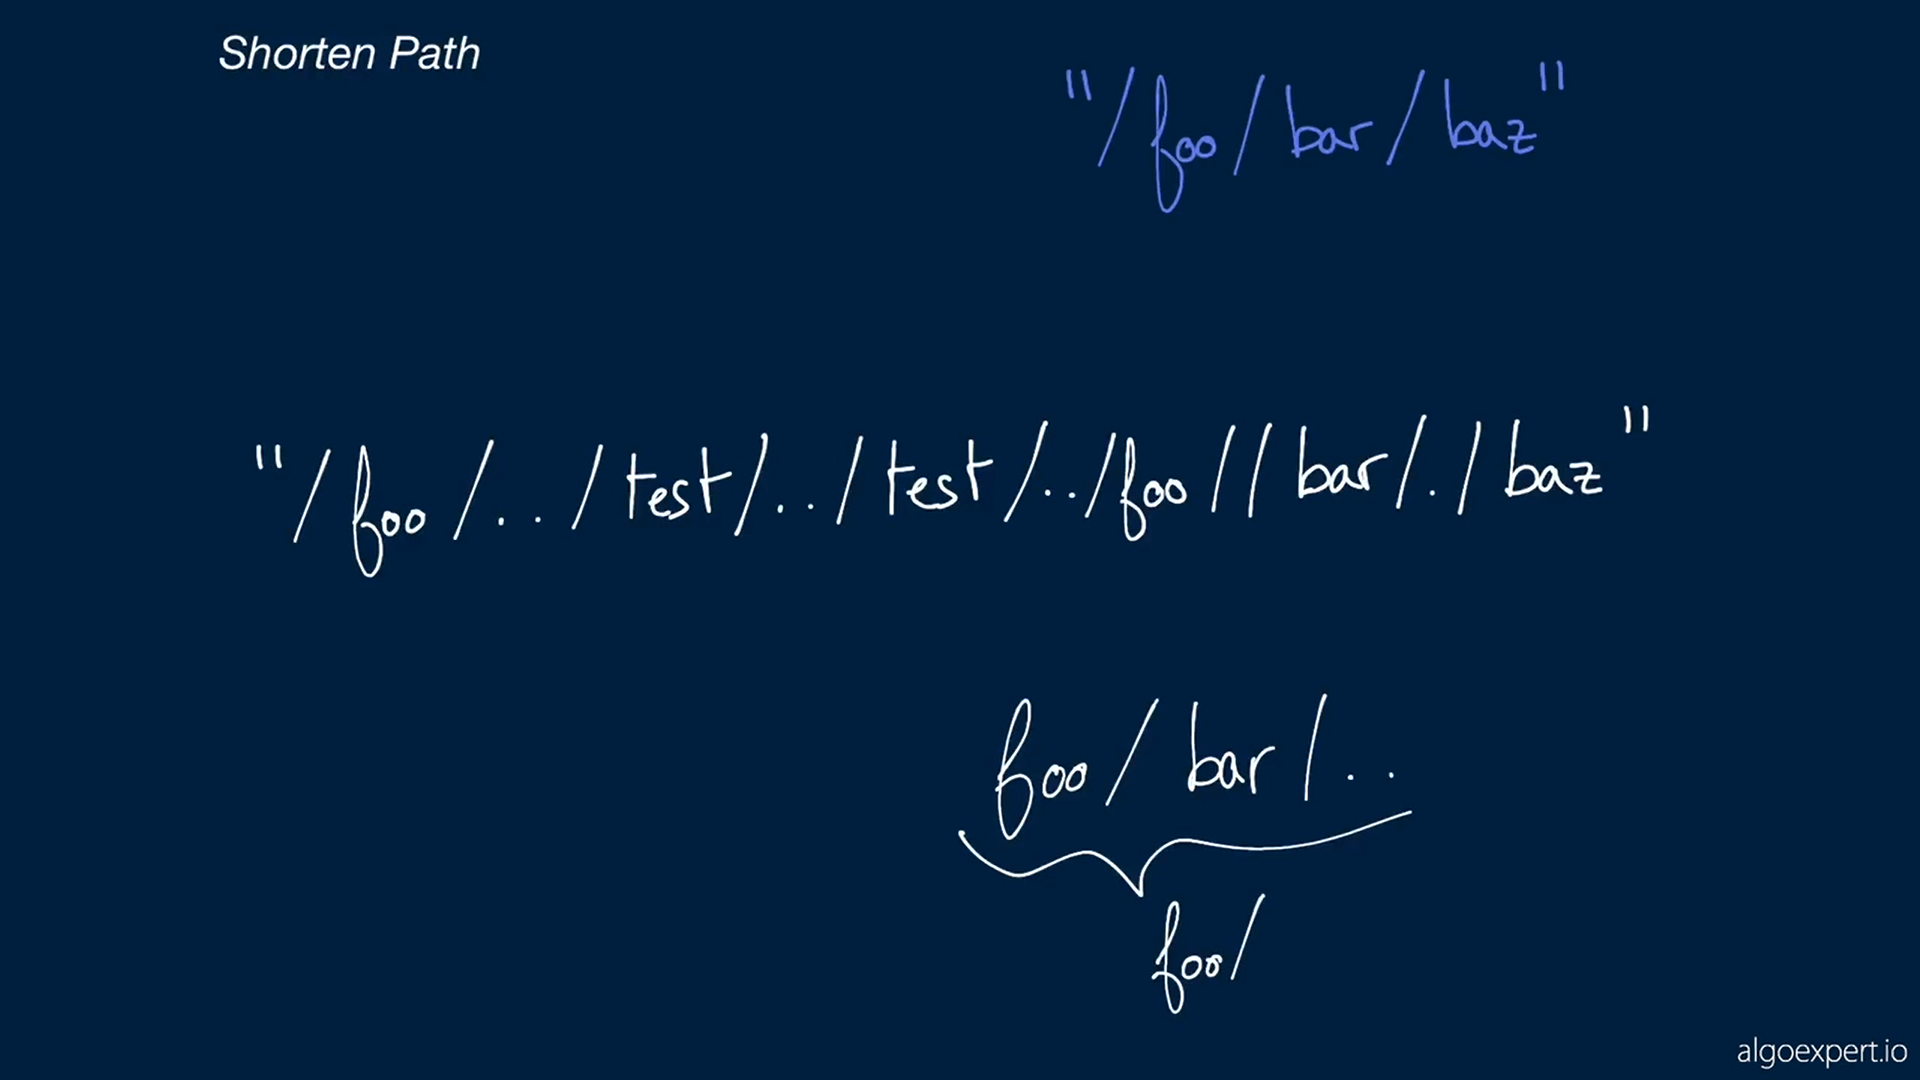 Shorten Path
"/foo/bar/baz"
"/foo/../test/../test/../foo//bar/./baz"
foo/bar/..
foo/
algoexpert.io